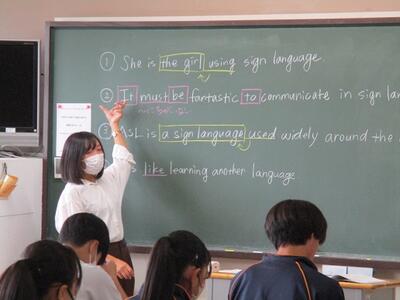 ① She is the girl using sign language.
② It must be fantastic to communicate in sign
ASL is a sign language used widely around the
like learning another language